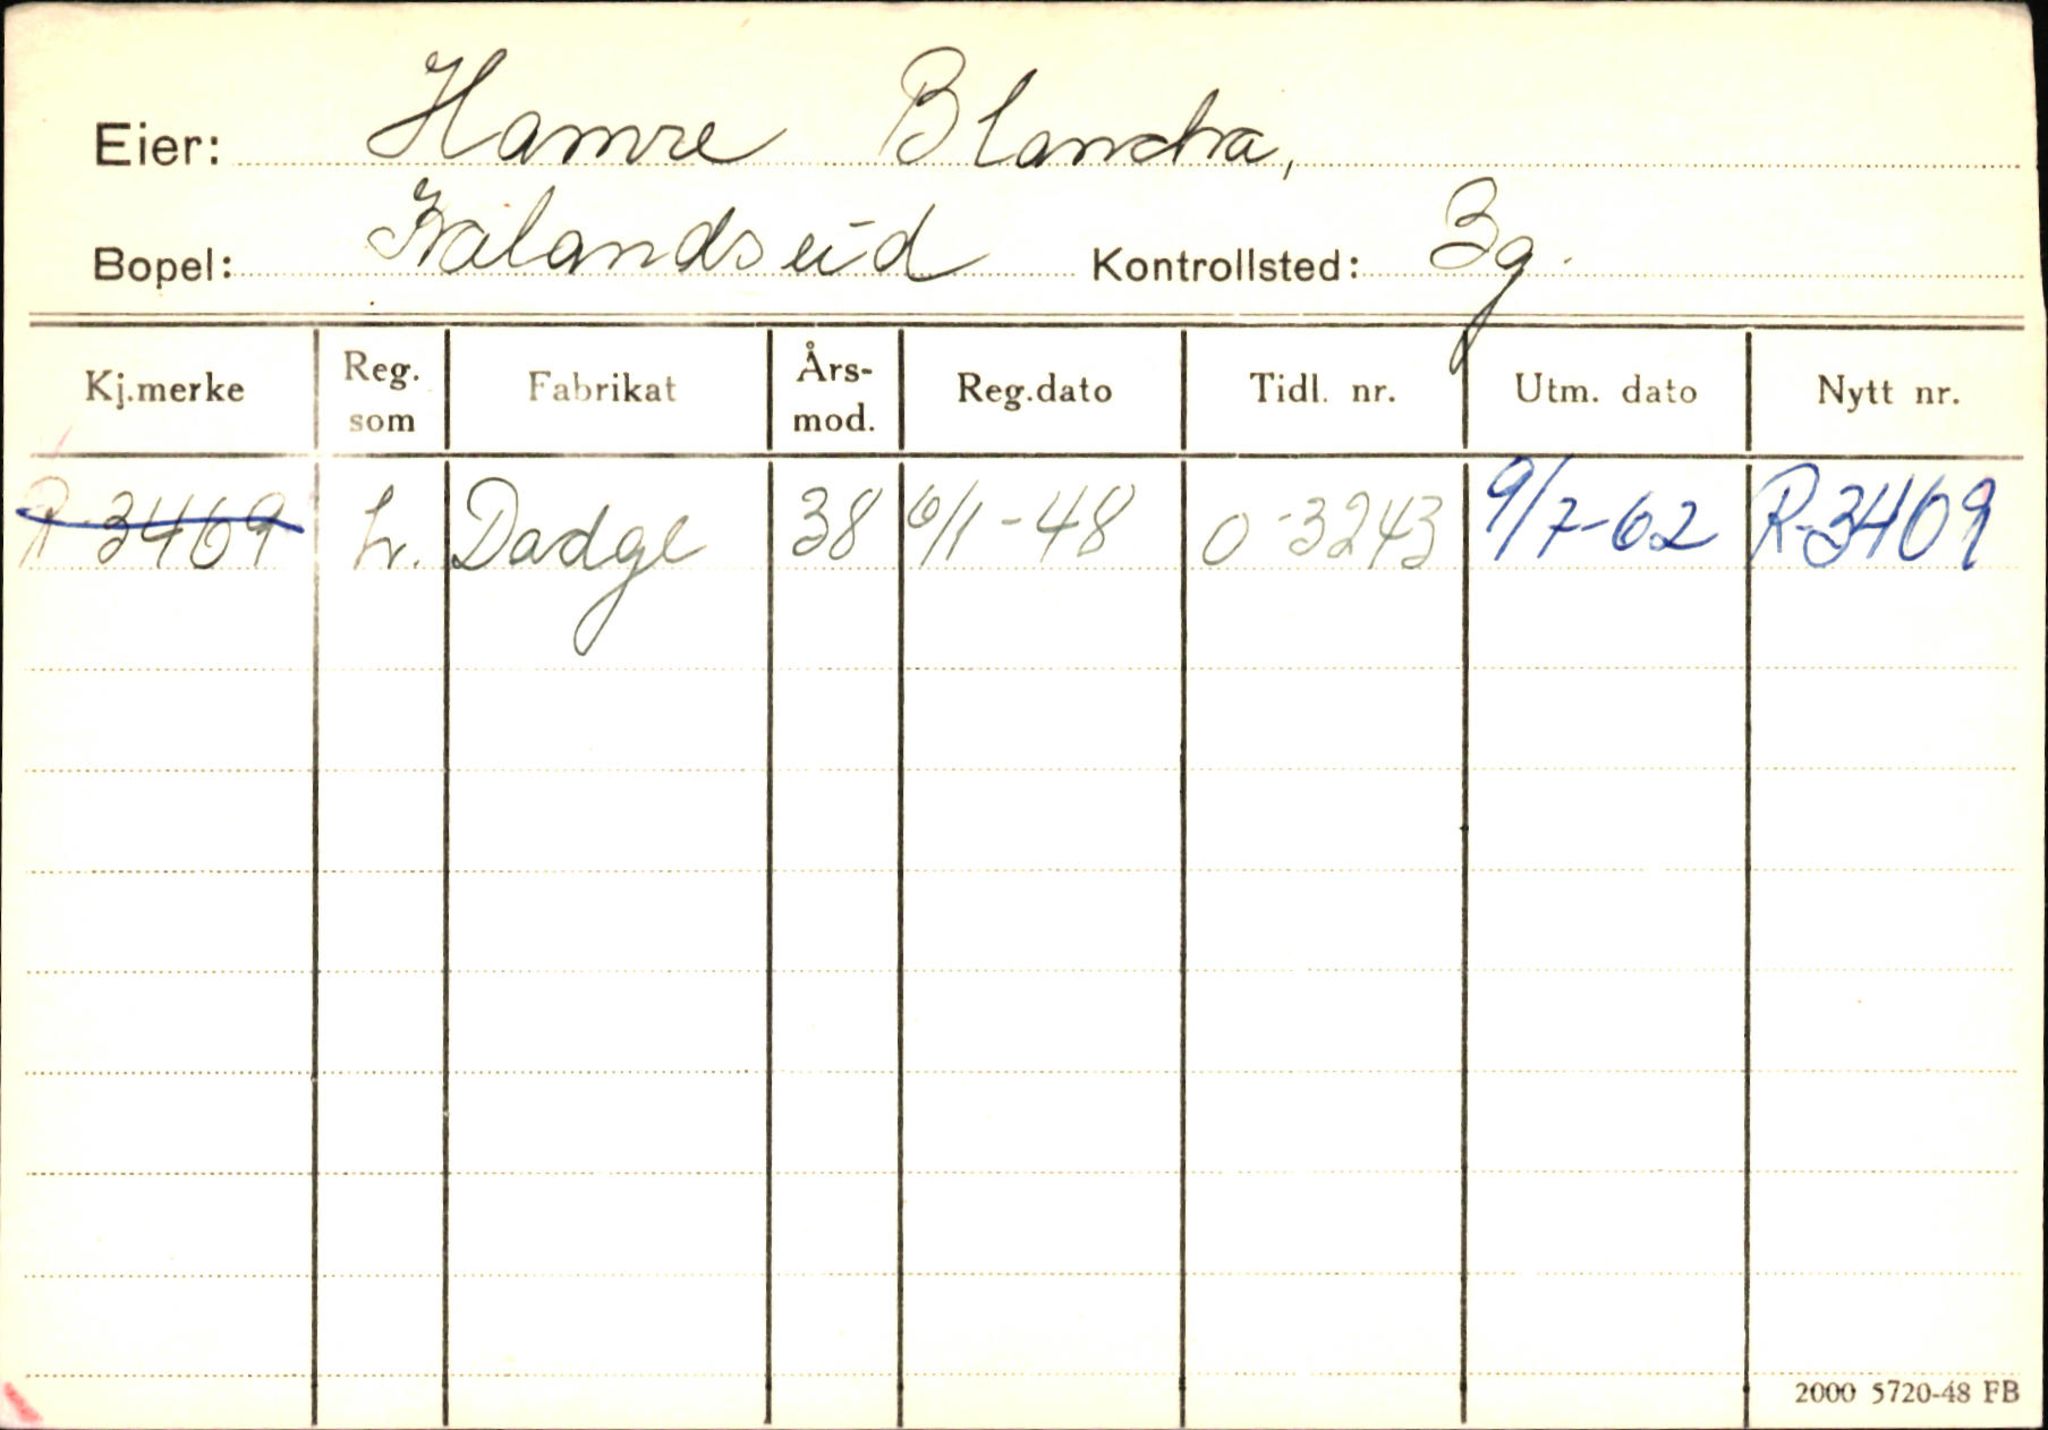 Eier: Hamre Blancha,
Bopel: Kalandseid Kontrollsted: Bg.
Kj.merke Reg. som Fabrikat Års- mod. Reg.dato Tidl. nr. Utm. dato Nytt nr.
R-3469 Lv. Dodge 38 6/1-48 O-3243 9/7-62 R-3409
2000 5720-48 FB